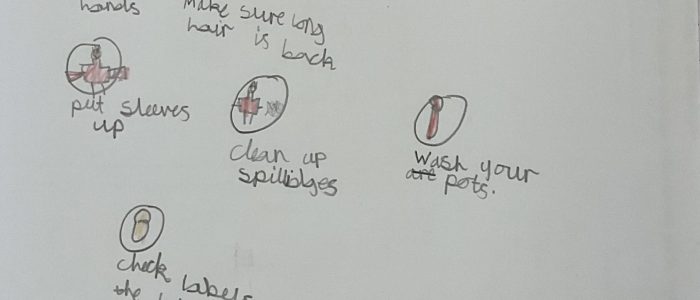 hands
Make sure long
hair is back
put sleeves
up
clean up
spillidges
Wash your
are pots.
check labels
the